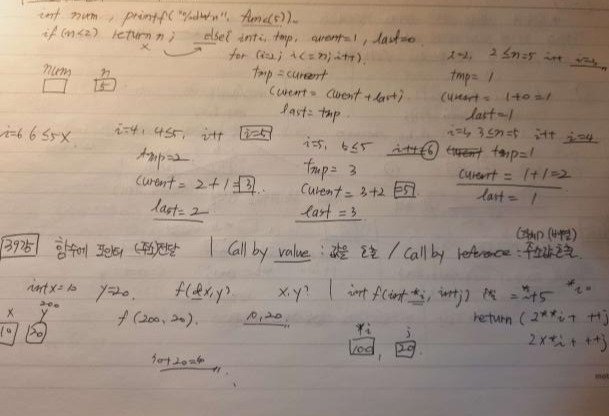 int num, printf("%d\n", func(5));
if (n<2) return n; else{ int i, tmp, curent=1, last=0
for (i=2; i<=n; i++)
num n
5
tmp = curent
curent = curent + last;
last = tmp
i=2, 2≤n=5 i++ i=3
tmp = 1
curent = 1+0=1
last=1
i=3, 3≤n=5 i++ i=4
tmp=1
curent = 1+1=2
last = 1
i=4, 4≤5, i++ i=5
tmp=2
curent = 2+1=3
last=2
i=5, 5≤5 i++=6
tmp= 3
curent = 3+2=5
last = 3
i=6 6≤5 X
함수에 포인터 (주소)전달 | Call by value : 값을 호출 / Call by reference : 주소값 호출
int x=10 y=20 f(&x, y) x, y? | int f(int *i, int j)
x y
200
10 20
f(200, 20). 10, 20
*i j
100, 20
return (2**i + ++j
2x*i + ++j